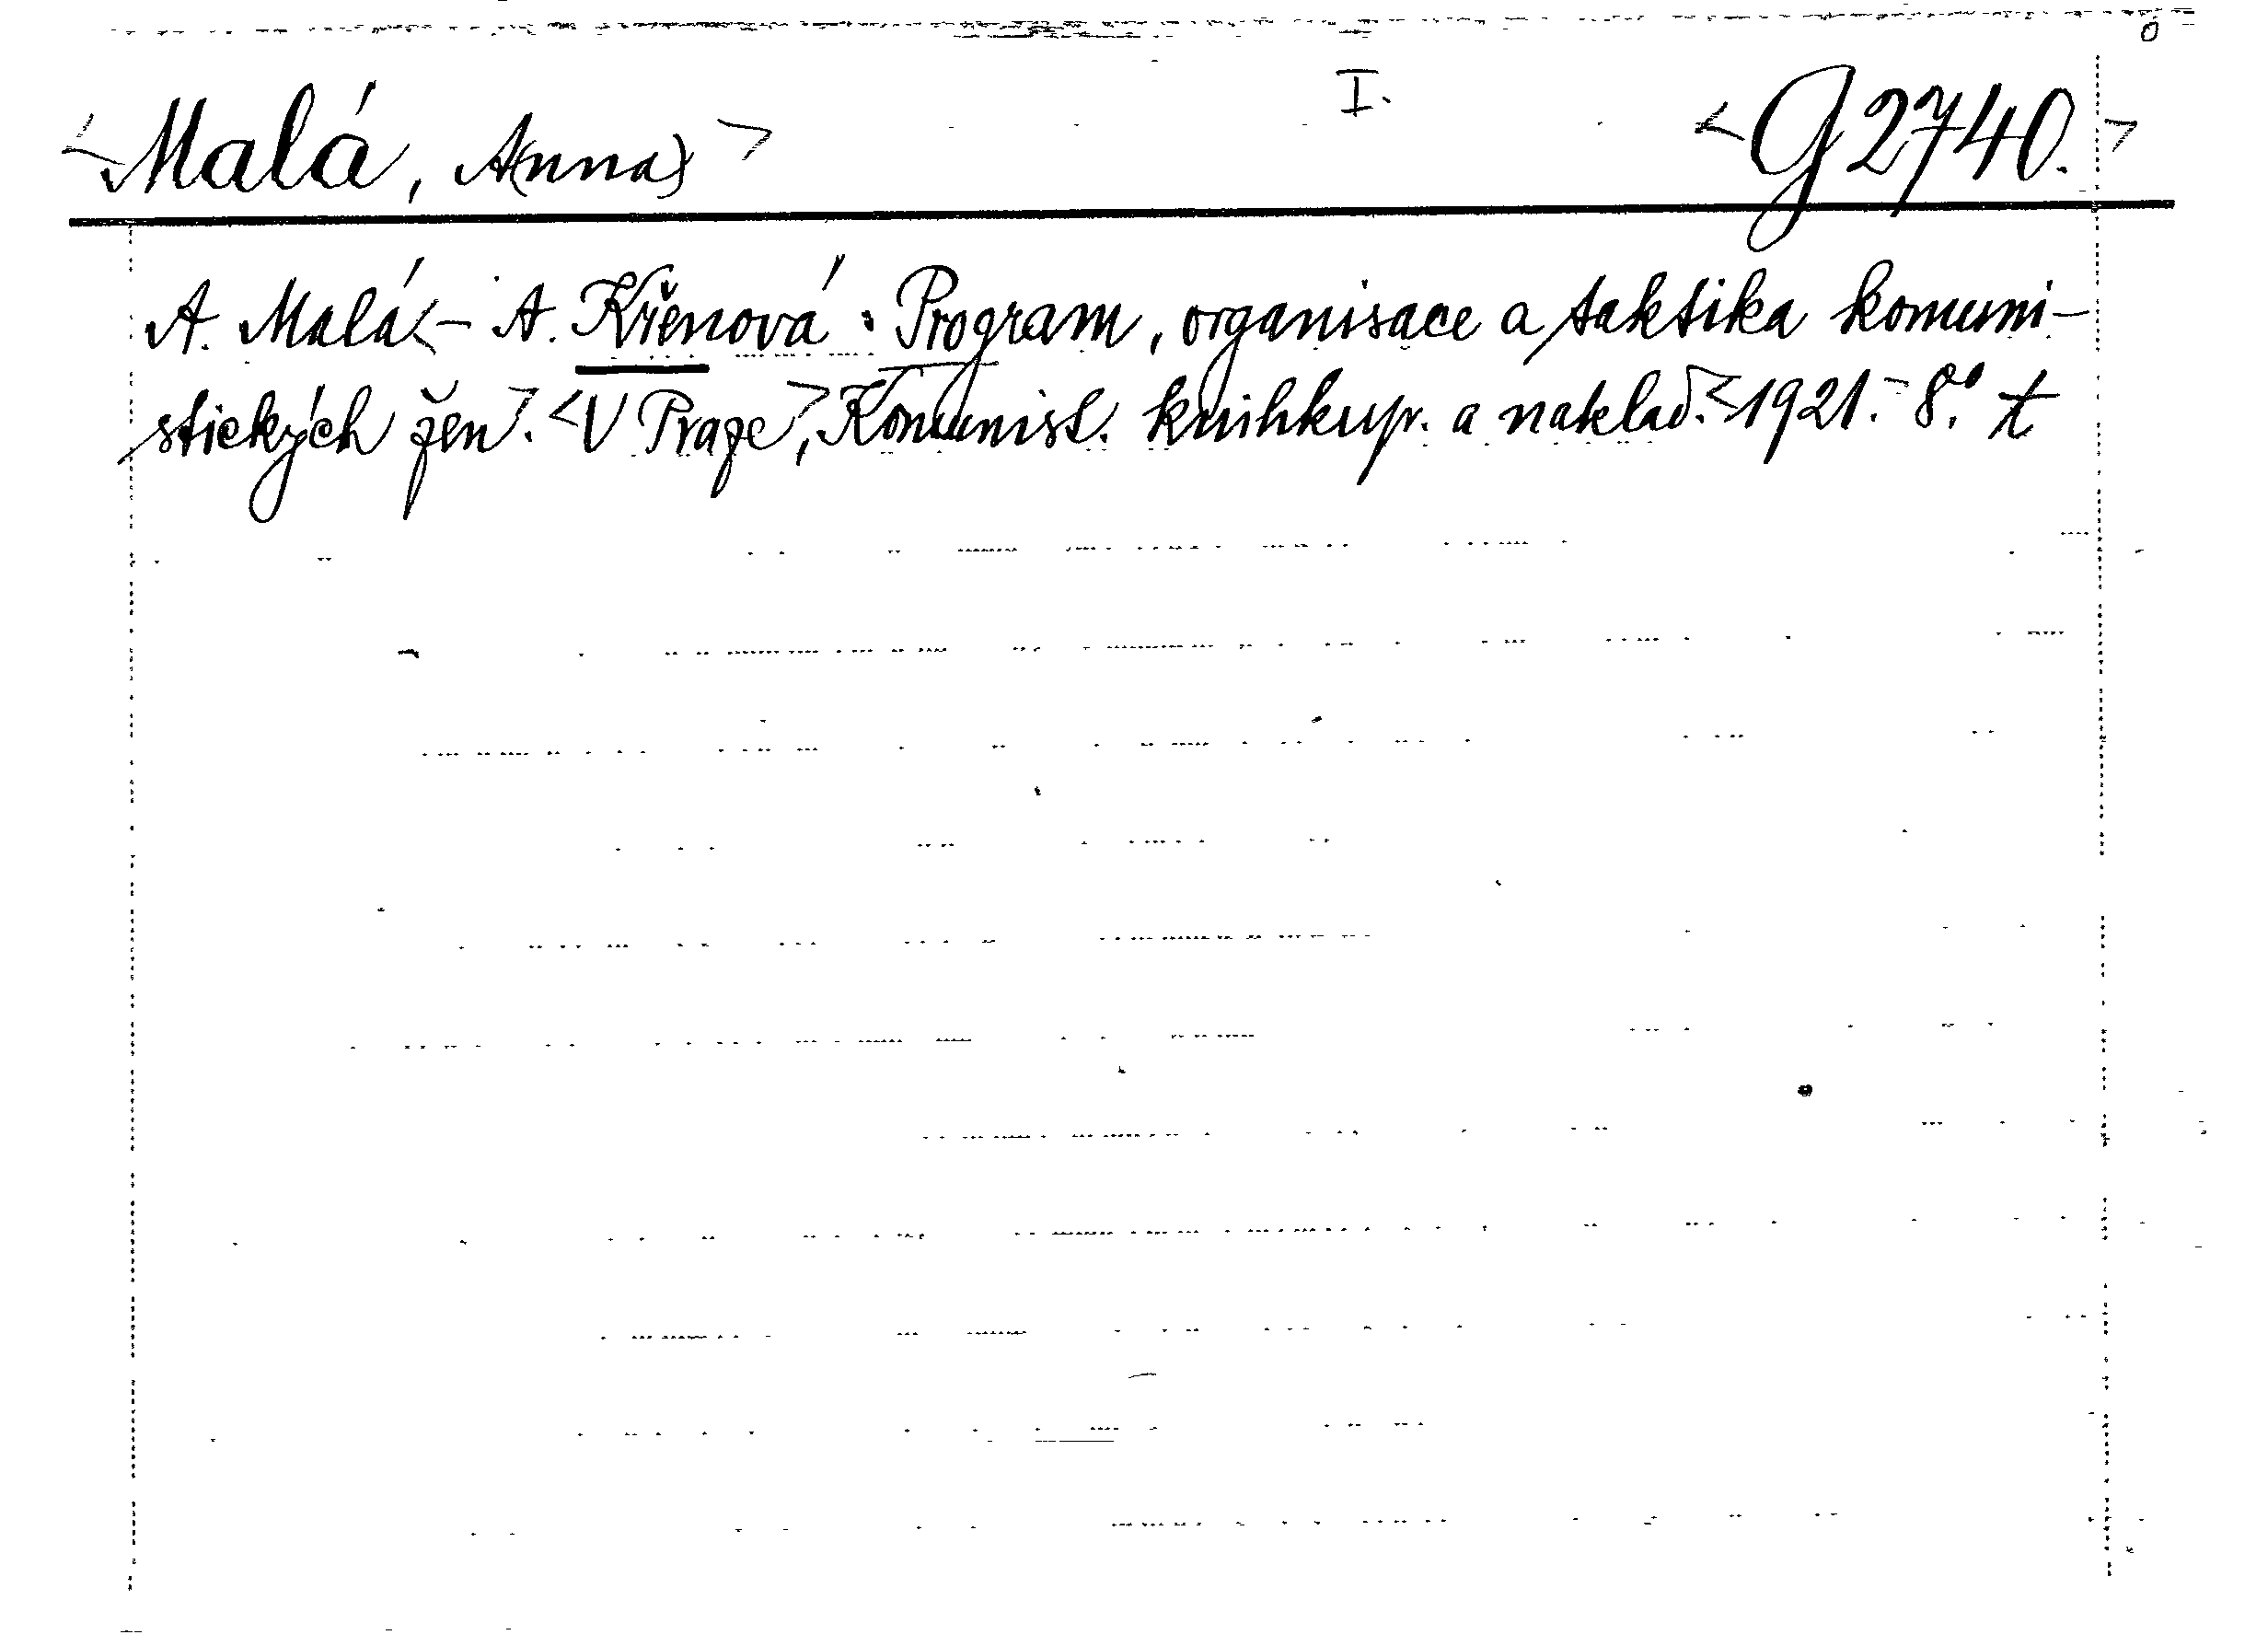 <Malá, A(nna)> I. <G 2740.>
A. Malá <- A. Křenová: Program, organisace a taktika komuni-
stických žen>. <V Praze>, Komunist. knihkup. a naklad. <1921.- 8.° t